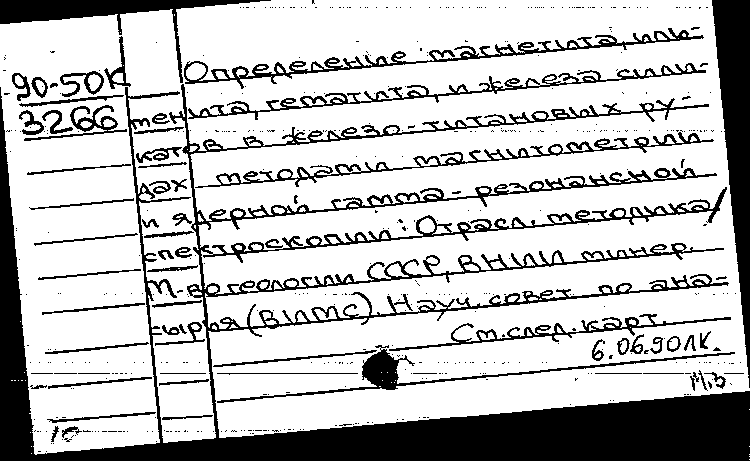 90-5OK
3266
Определение магнетита, иль-
менита, гематита, и железа сили-
катов в железо-титановых ру-
дах методами магнитометрии
и ядерной гамма-резонансной
спектроскопии: Отрасл. методика/
М-во геологии СССР, ВНИИ минер.
сырья (ВИМС). Науч. совет по ана-
См. след. карт.
6.06.90 ЛК.
М.З
10